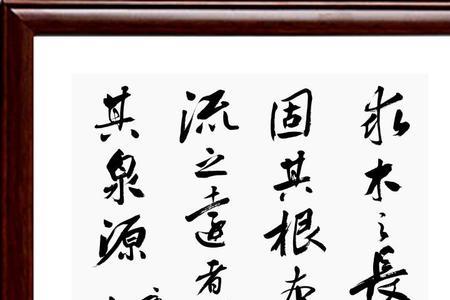 求木之長
固其根本
流之遠者
其泉源